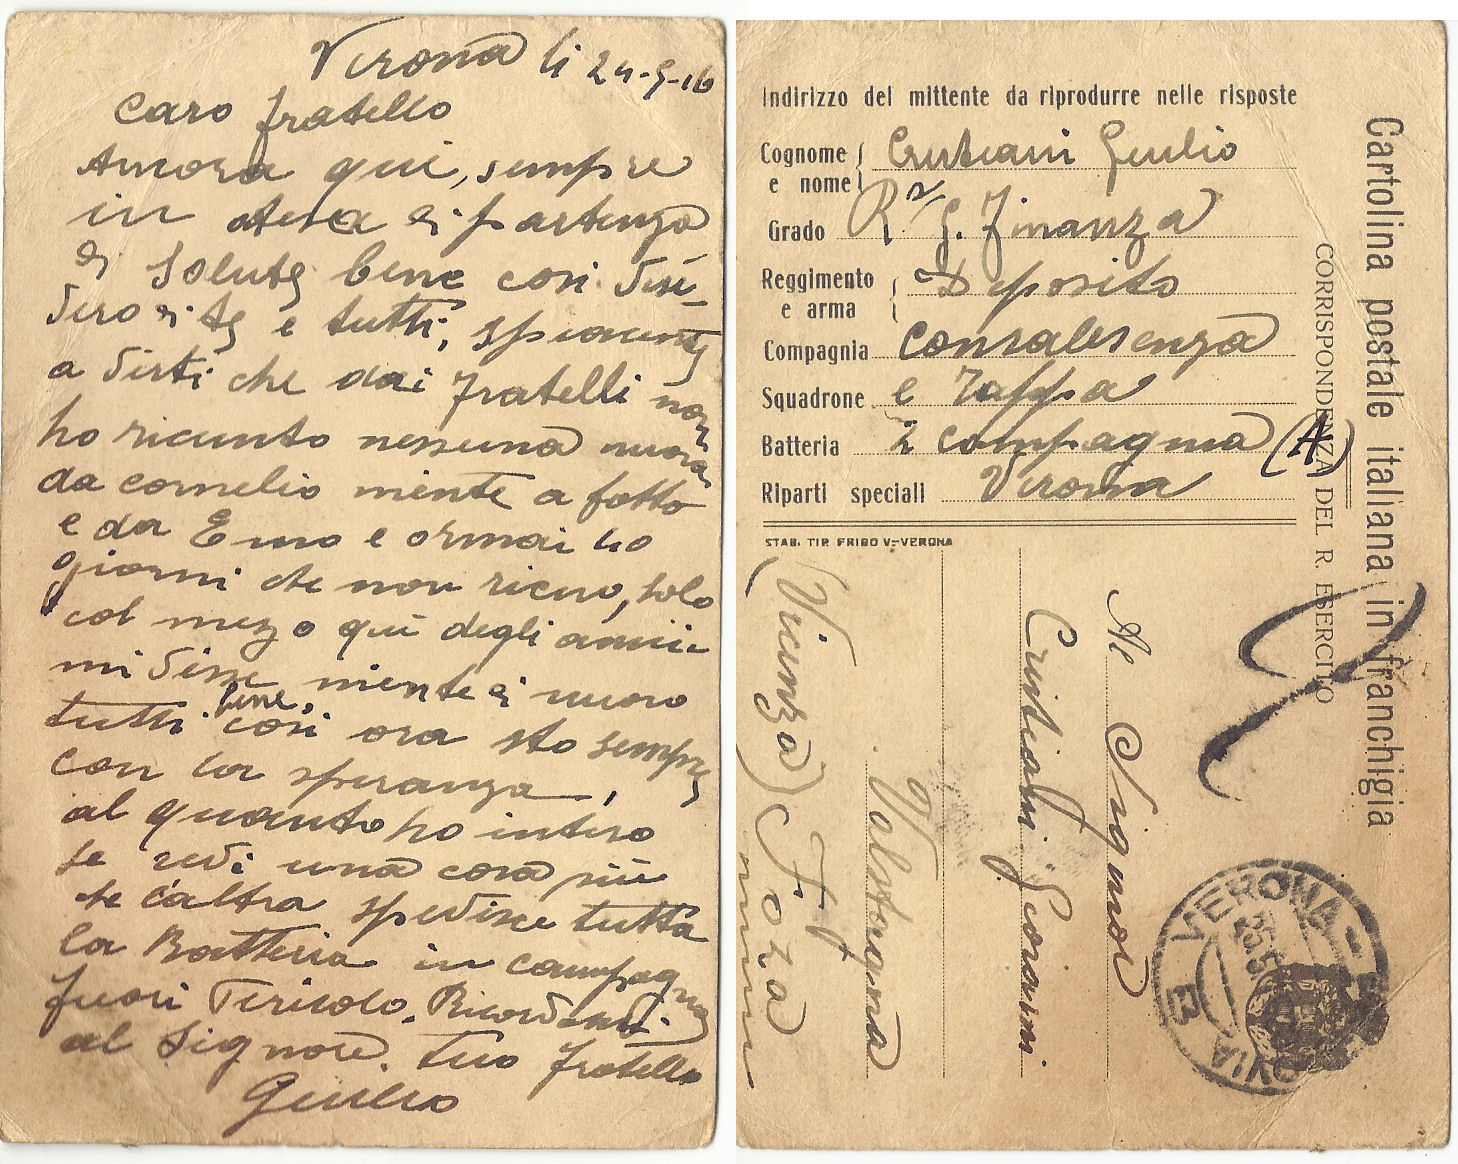 Verona li 24-5-16
Caro fratello
Ancora qui, sempre
in atesa di partenza
di Salute bene cosi desi-
dero di te e tutti, spiacente
a dirti che dai fratelli non
ho ricevuto nessuna nuova
da Cornelio niente a fatto
e da Emo e ormai 20
giorni che non ricevo, solo
col mezzo qui degli amici
mi disse niente di nuovo
tutti bene, cosi ora sto sempre
con la speranza,
al quanto ho inteso
se vedi una cosa più
te l'altra spedisce tutta
la Batteria in campagna
fuori Pericolo. Ricordami
al Signore. tuo fratello
Giulio
Indirizzo del mittente da riprodurre nelle risposte
Cognome e nome Cristiani Giulio
Grado R. G. Finanza
Reggimento e arma Deposito
Compagnia Convalescenza
Squadrone e Tappa
Batteria 2 compagnia (A)
Riparti speciali Verona
STAB. TIP. FRIGO V.-VERONA
Cartolina postale italiana in franchigia
CORRISPONDENZA DEL R. ESERCITO
Al Signor
Cristiani Giovanni
Valstagna
(Vicenza) Foza
VERONA - FERROVIA